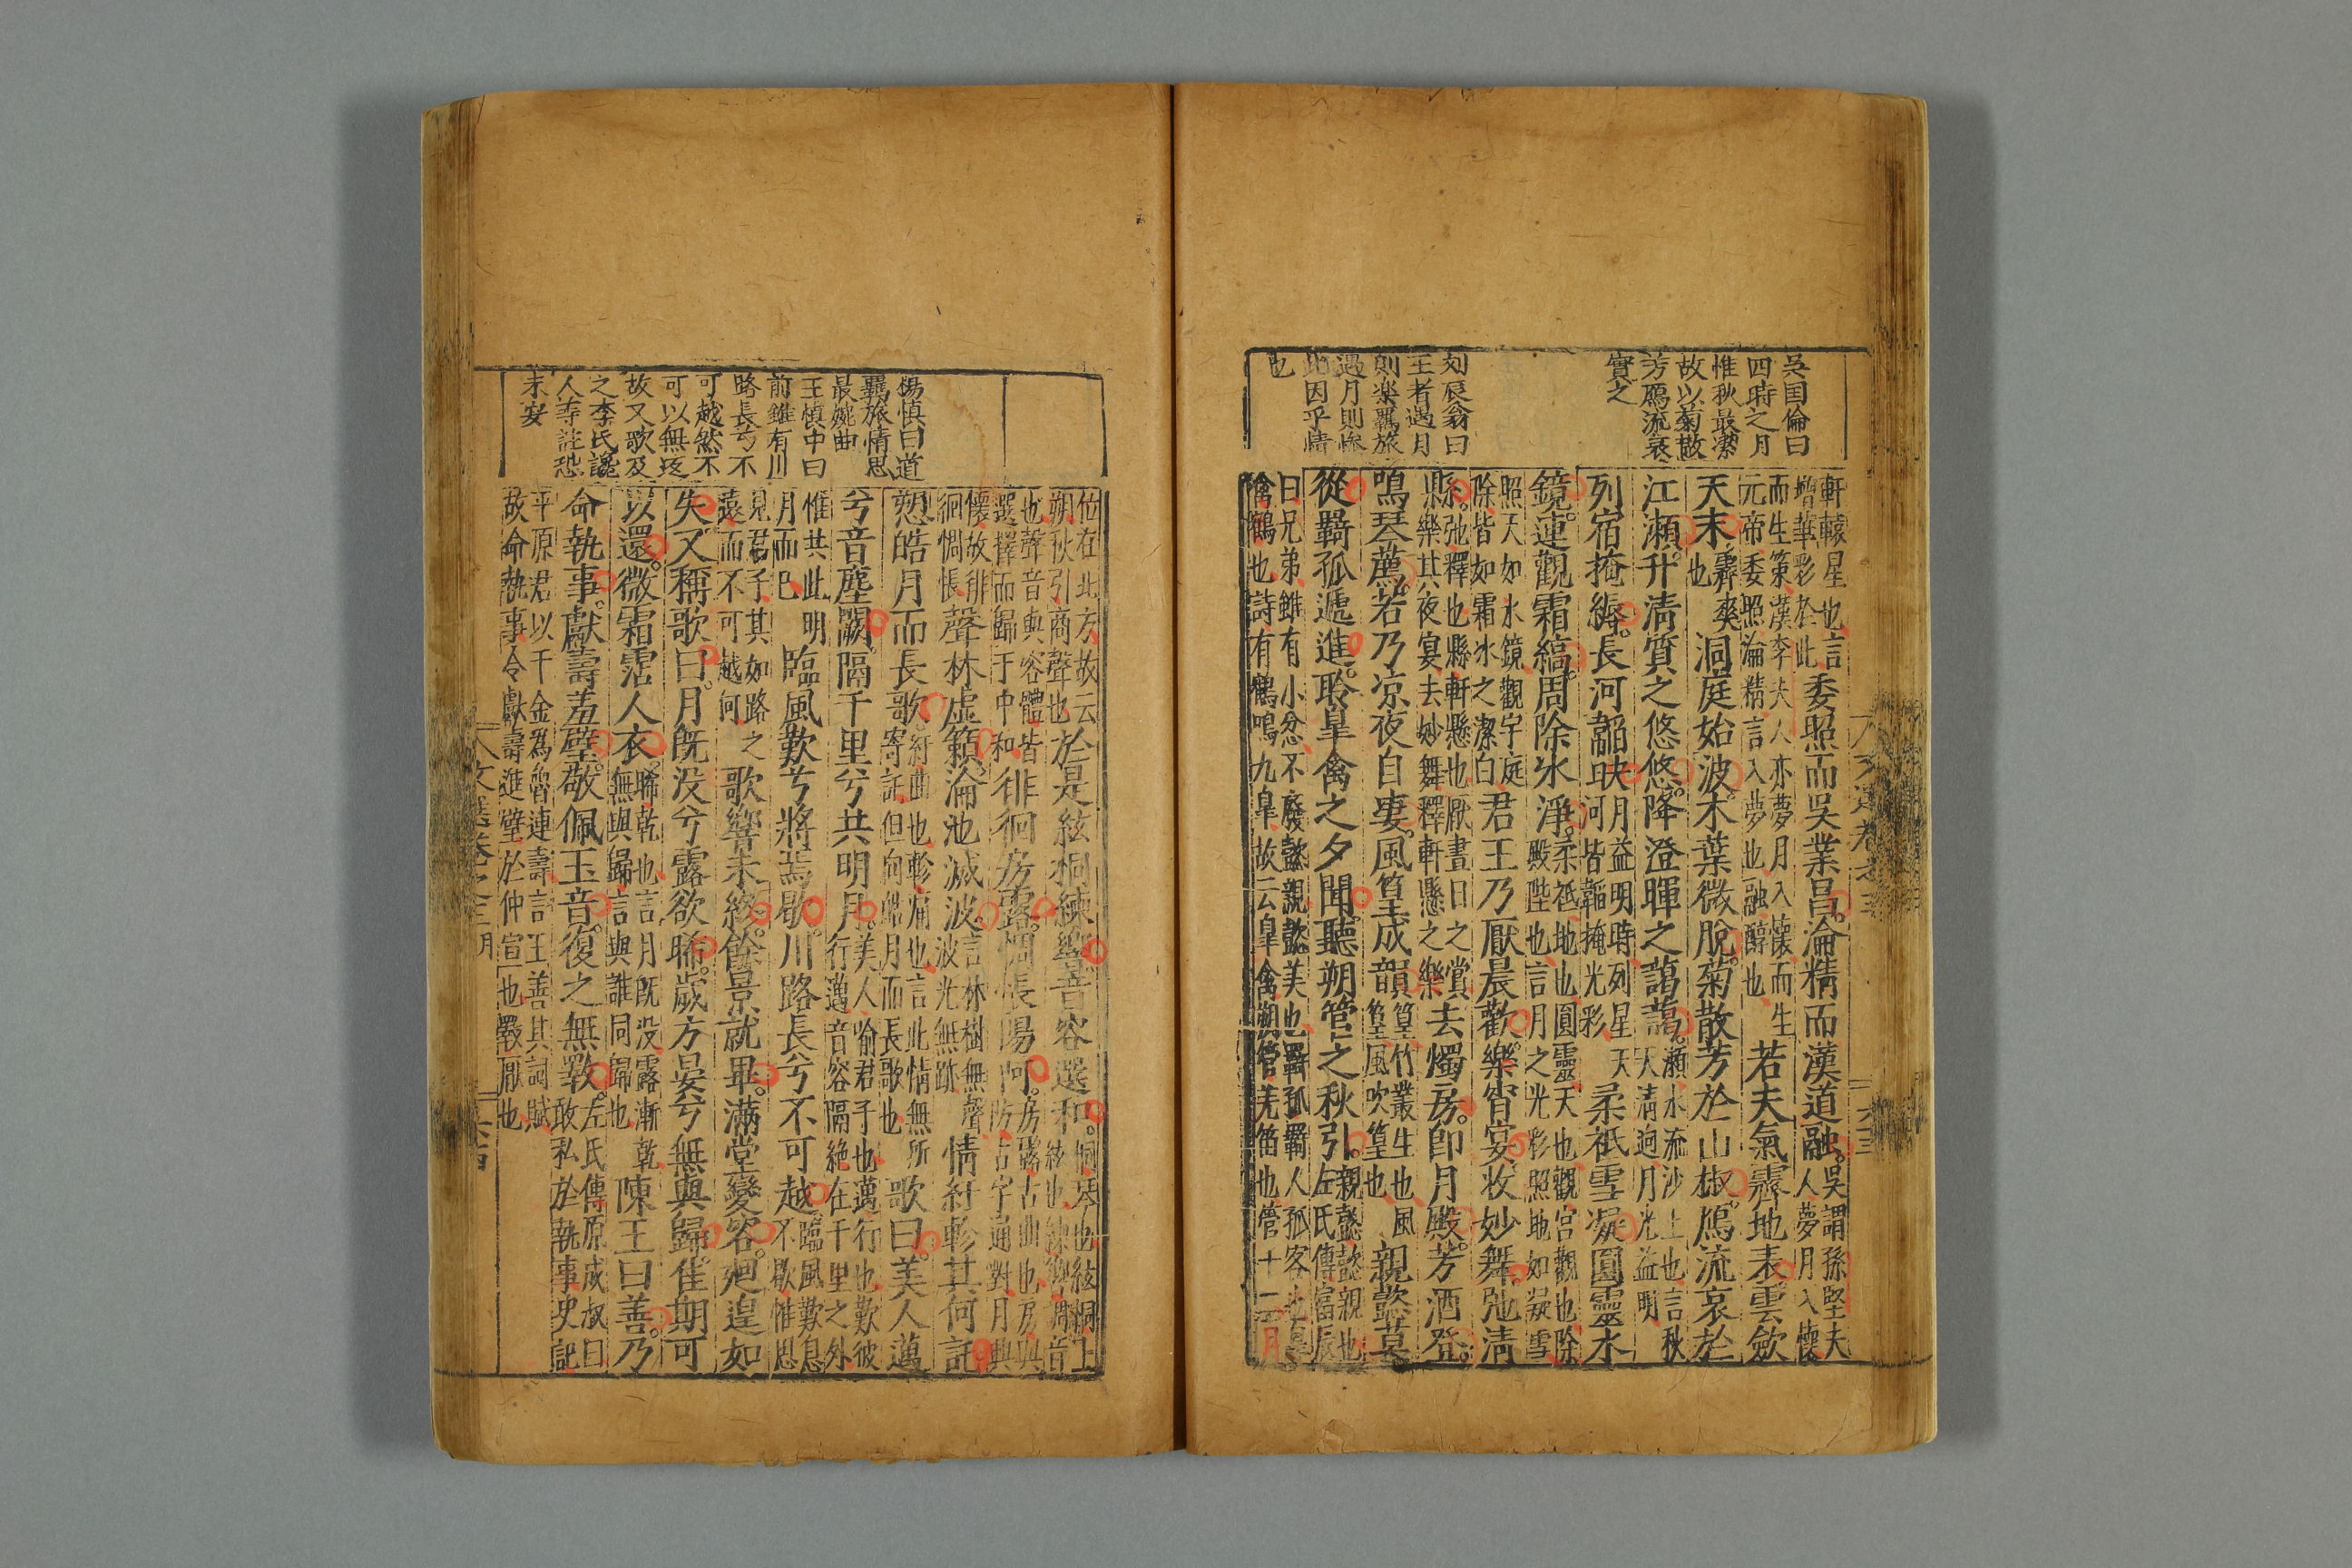 吳国倫曰
四時之月
惟秋最潔
故以菊散
芳鴈流哀
實之
刻辰翁曰
王者遇月
則楽羈旅
遇月則慘
此因乎情
也
軒轅星也言增華彩於此委照而吳業昌。淪精而漢道融。吳謂孫堅夫人夢月入懷
而生策漢李夫人亦夢月入懷而生元帝委照淪精言入夢也融醇也若夫氣霽地表雲斂
天末霽爽也洞庭始波。木葉微脫。菊散芳於山椒。鴈流哀於
江瀬。升清質之悠悠。降澄暉之藹藹。瀬水流沙上也言秋天清逈月光益明
列宿掩縟。長河韜映月益明時列星天河皆韜掩光彩柔祇雪凝圓靈水
鏡。連觀霜縞。周除氷淨。柔祇地也圓靈天也觀宮觀也除殿陛也言月之光彩照地如凝雪
照天如水鏡觀宇庭除皆如霜氷之潔白君王乃厭晨歡。樂宵宴。收妙舞。弛清
縣。弛釋也縣軒懸也厭晝日之賞樂其夜宴去妙舞釋軒懸之樂去燭房。即月殿。芳酒登。
鳴琴薦。若乃凉夜自凄。風篁成韻篁竹叢生也風篁風吹篁也親懿莫
從。羇孤遞進。聆皐禽之夕聞。聽朔管之秋引。親懿懿親也左氏傳富辰
曰兄弟雖有小忿不廢懿親懿美也羇孤羇人孤客也皐禽鶴也詩有鶴鳴九皐故云皐禽朔管羌笛也管十二月
楊慎曰道
羈旅情思
最婉曲
王慎中曰
前雖有川
路長兮不
可越然不
可以無返
故又歌及
之李氏譏
人等註恐
未安
位在北方故云朔秋引商聲也於是絃桐練響。音容選和。桐琴也絃桐上絃也練響調音
也聲音與容體皆選擇而歸于中和徘徊房露。惆悵陽阿。房露古曲也房與防古字通對月興
懷故徘徊惆悵聲林虛籟。淪池滅波。言林樹無聲波光無跡情紆軫其何託
愬皓月而長歌。紆曲也軫痛也言此情無所寄託但向皓月而長歌也歌曰美人邁
兮音塵闕。隔千里兮共明月。美人喻君子也邁行也歎彼行邁音容隔絶在千里之外
惟共此明月而已臨風歎兮將焉歇。川路長兮不可越。臨風歎息不歇惟思
見君子其如路之遠而不可越何歌響未終。餘景就畢。滿堂變容。廻遑如
失。又稱歌曰。月旣没兮露欲晞。歲方晏兮無與歸。佳期可
以還。微霜霑人衣。晞乾也言月旣没露漸乾無與歸言與誰同歸也陳王曰善。乃
命執事。獻壽羞璧。敬佩玉音。復之無斁。左氏傳原成叔曰敢私於執事史記
平原君以千金爲魯連壽言王善其詞賦故命執事令獻壽進璧於仲宣也斁厭也